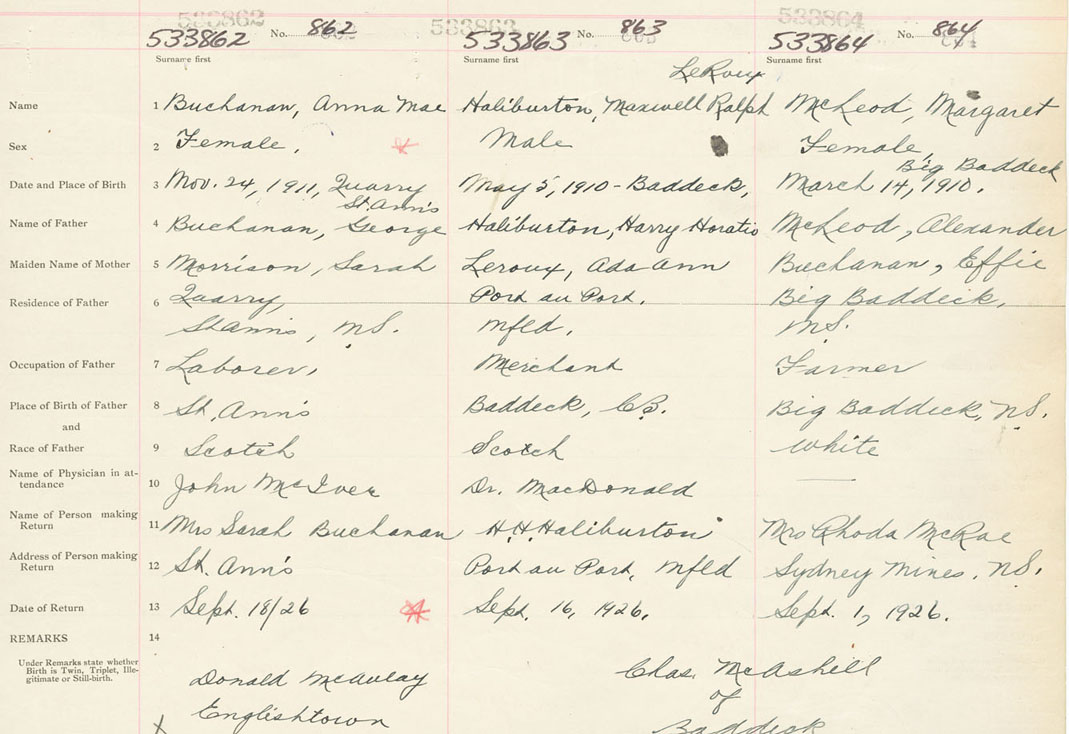 533862 533863 533864
533862 No. 862 533863 No. 863 533864 No. 864
Surname first Surname first Surname first
LeRoux
Name 1 Buchanan, Anna Mae Haliburton, Maxwell Ralph McLeod, Margaret
Sex 2 Female, Male Female,
Big Baddeck
Date and Place of Birth 3 Nov. 24, 1911, Quarry May 5, 1910 - Baddeck, March 14, 1910.
St. Ann's
Name of Father 4 Buchanan, George Haliburton, Harry Horatio McLeod, Alexander
Maiden Name of Mother 5 Morrison, Sarah Leroux, Ada Ann Buchanan, Effie
Residence of Father 6 Quarry, Port au Port. Big Baddeck,
St Anns, N.S. Nfld. N.S.
Occupation of Father 7 Laborer, Merchant Farmer
Place of Birth of Father 8 St. Ann's Baddeck, C.B. Big Baddeck, N.S.
and
Race of Father 9 Scotch Scotch White
Name of Physician in at-
tendance 10 John McIver Dr. MacDonald
Name of Person making
Return 11 Mrs Sarah Buchanan H.H. Haliburton Mrs Rhoda McRae
Address of Person making
Return 12 St. Ann's Port au Port, Nfld Sydney Mines, N.S.
Date of Return 13 Sept. 18/26 Sept. 16, 1926. Sept. 1, 1926.
REMARKS 14
Under Remarks state whether
Birth is Twin, Triplet, Ille-
gitimate or Still-birth.
Donald McAulay Chas. McAshell
Englishtown of
Baddeck